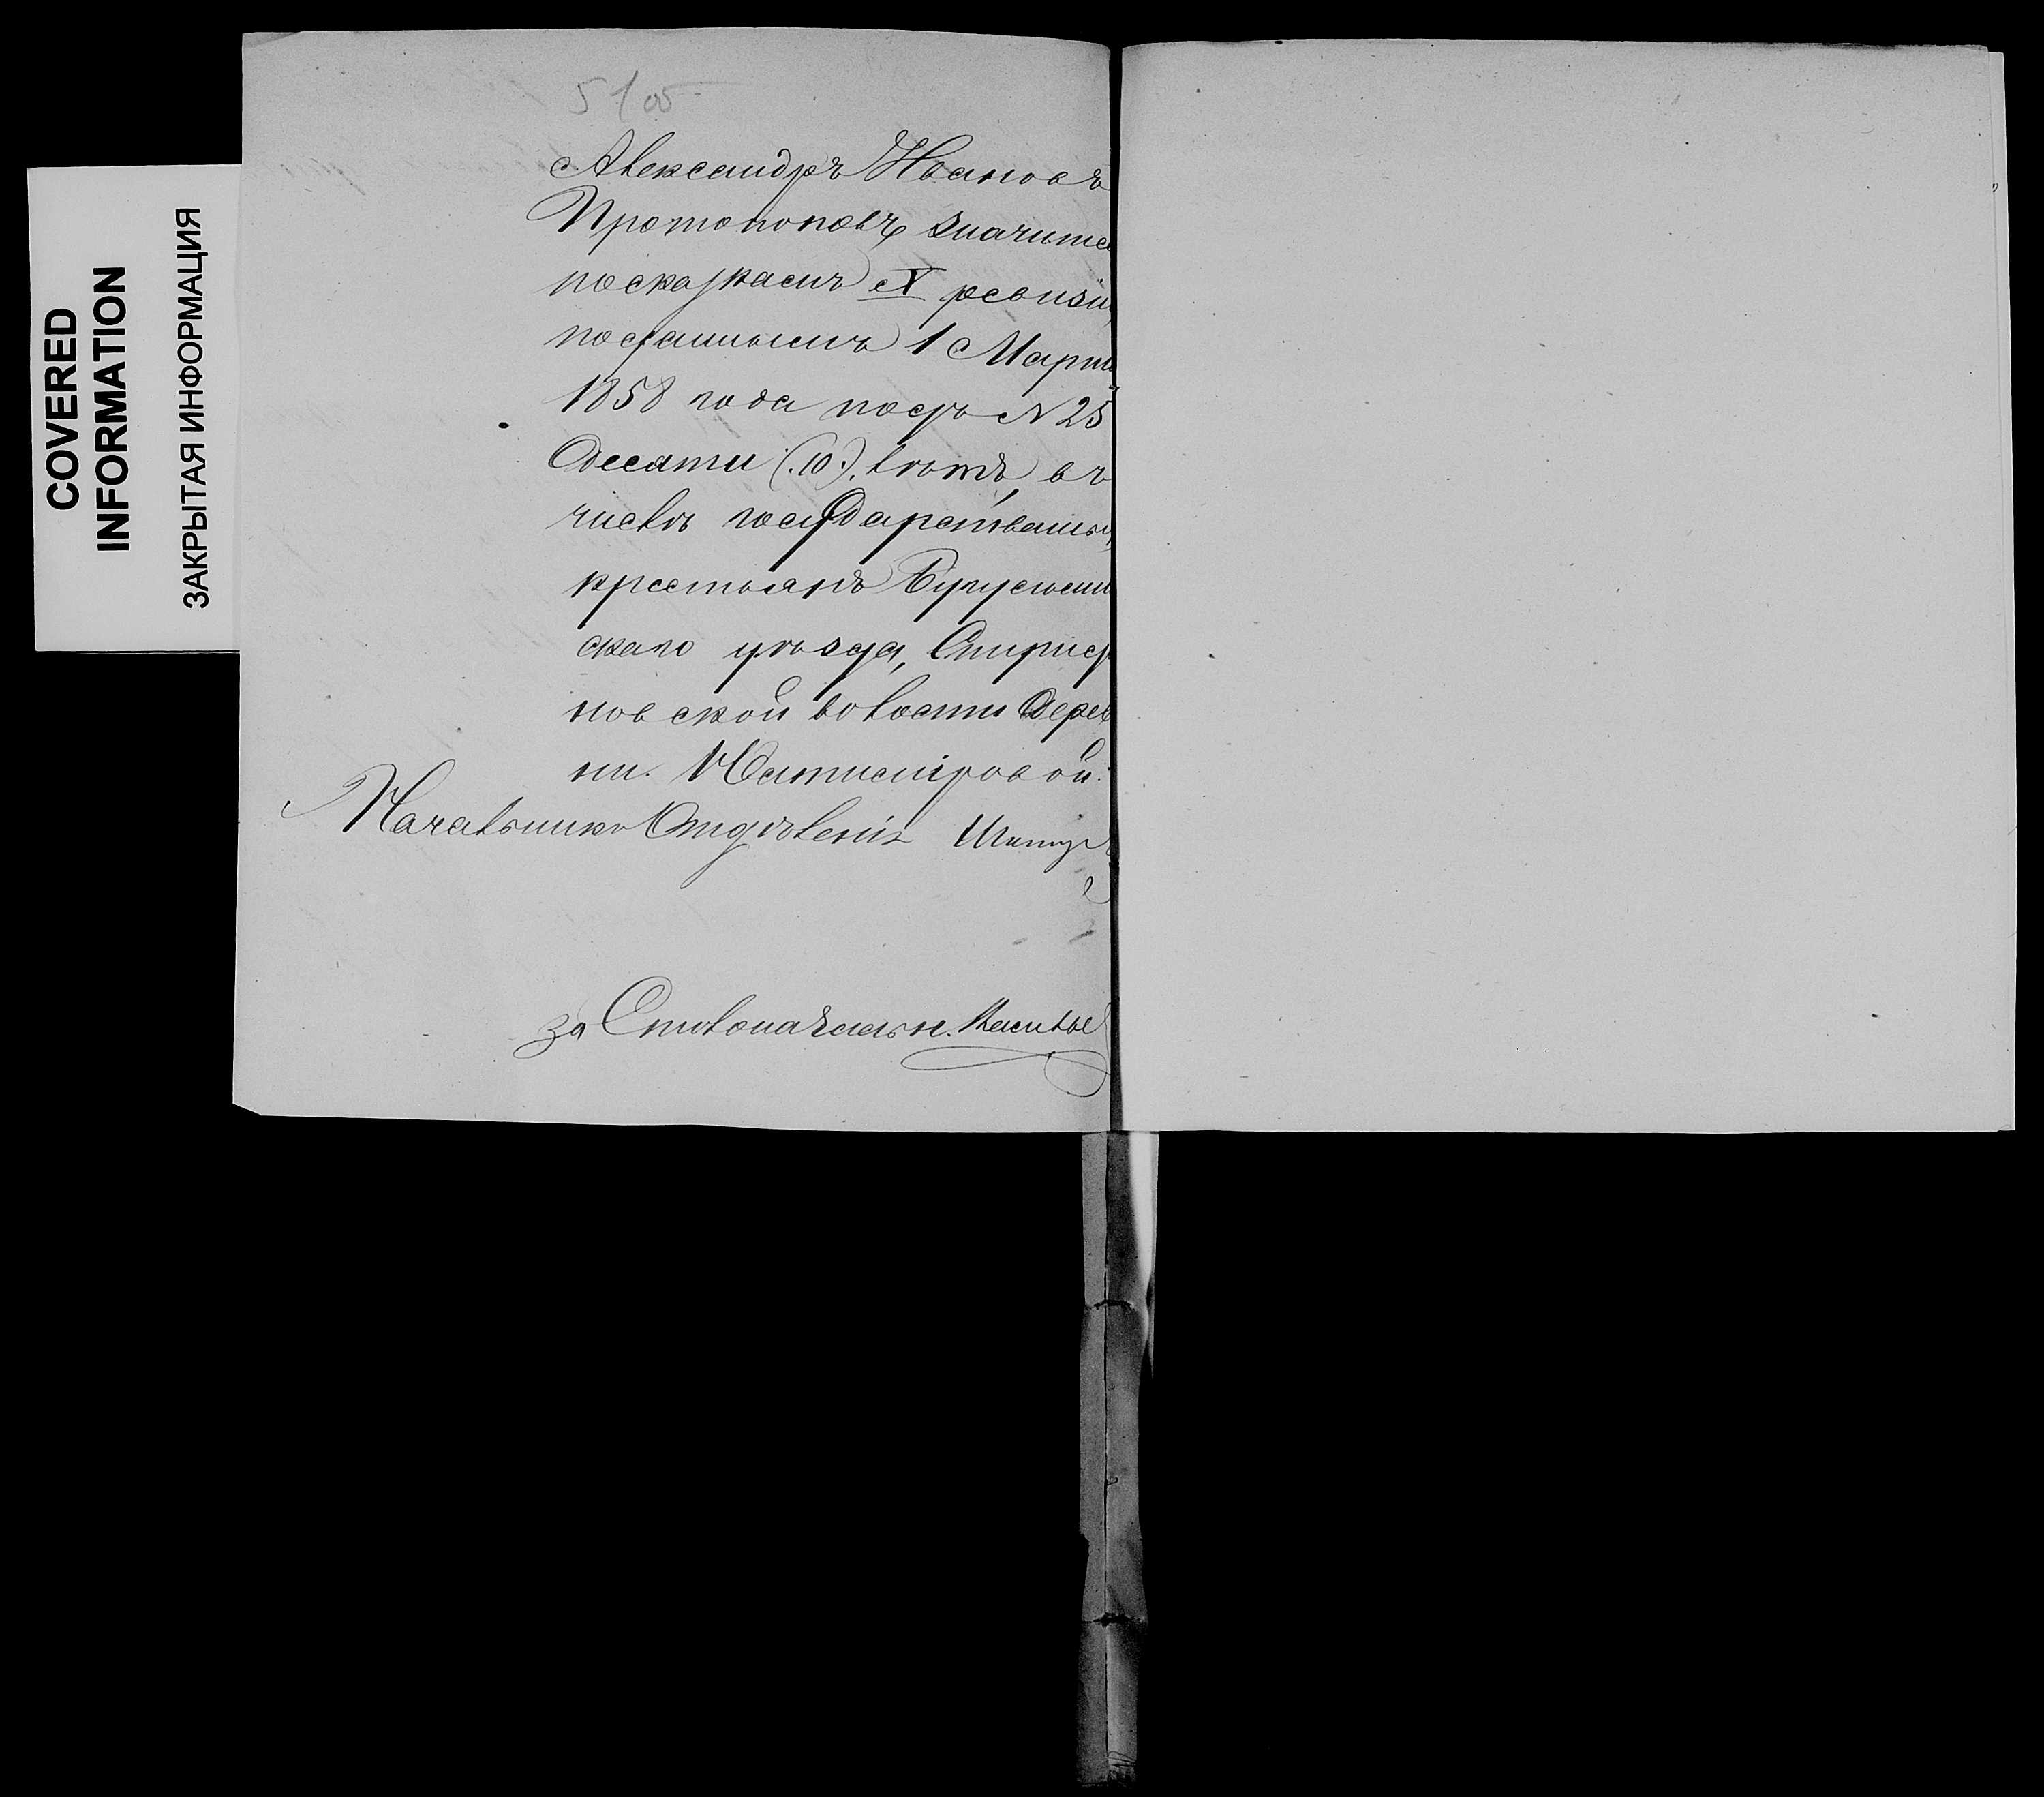 COVERED
INFORMATION
ЗАКРЫТАЯ ИНФОРМАЦИЯ
51 об
Александръ Ивановъ
Протопоповъ значитс
по сказкамъ X ревизіи
поданнымъ 1 Марта
1858 года подъ N 25
десяти (10) лѣтъ, въ
числѣ государственны
крестьянъ Бугульмин
скаго уѣзда, Спирид
новской волости дерев
ни
Начальникъ Отдѣленія
за Столоначальн.